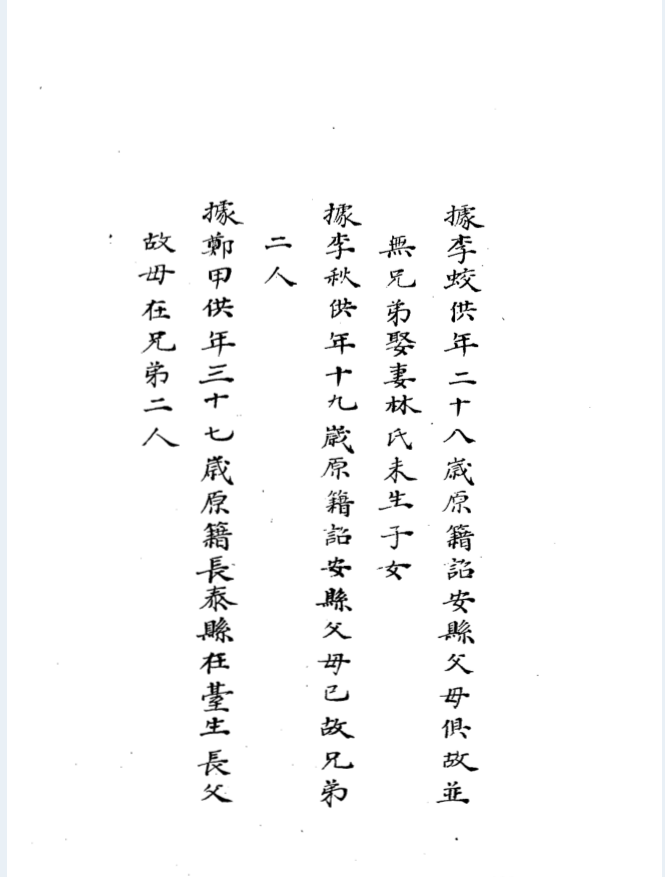 據李蛟供年二十八歲原籍詔安縣父母俱故並
無兄弟娶妻林氏未生子女
據李秋供年十九歲原籍詔安縣父母已故兄弟
二人
據鄭甲供年三十七歲原籍長泰縣在臺生長父
故母在兄弟二人